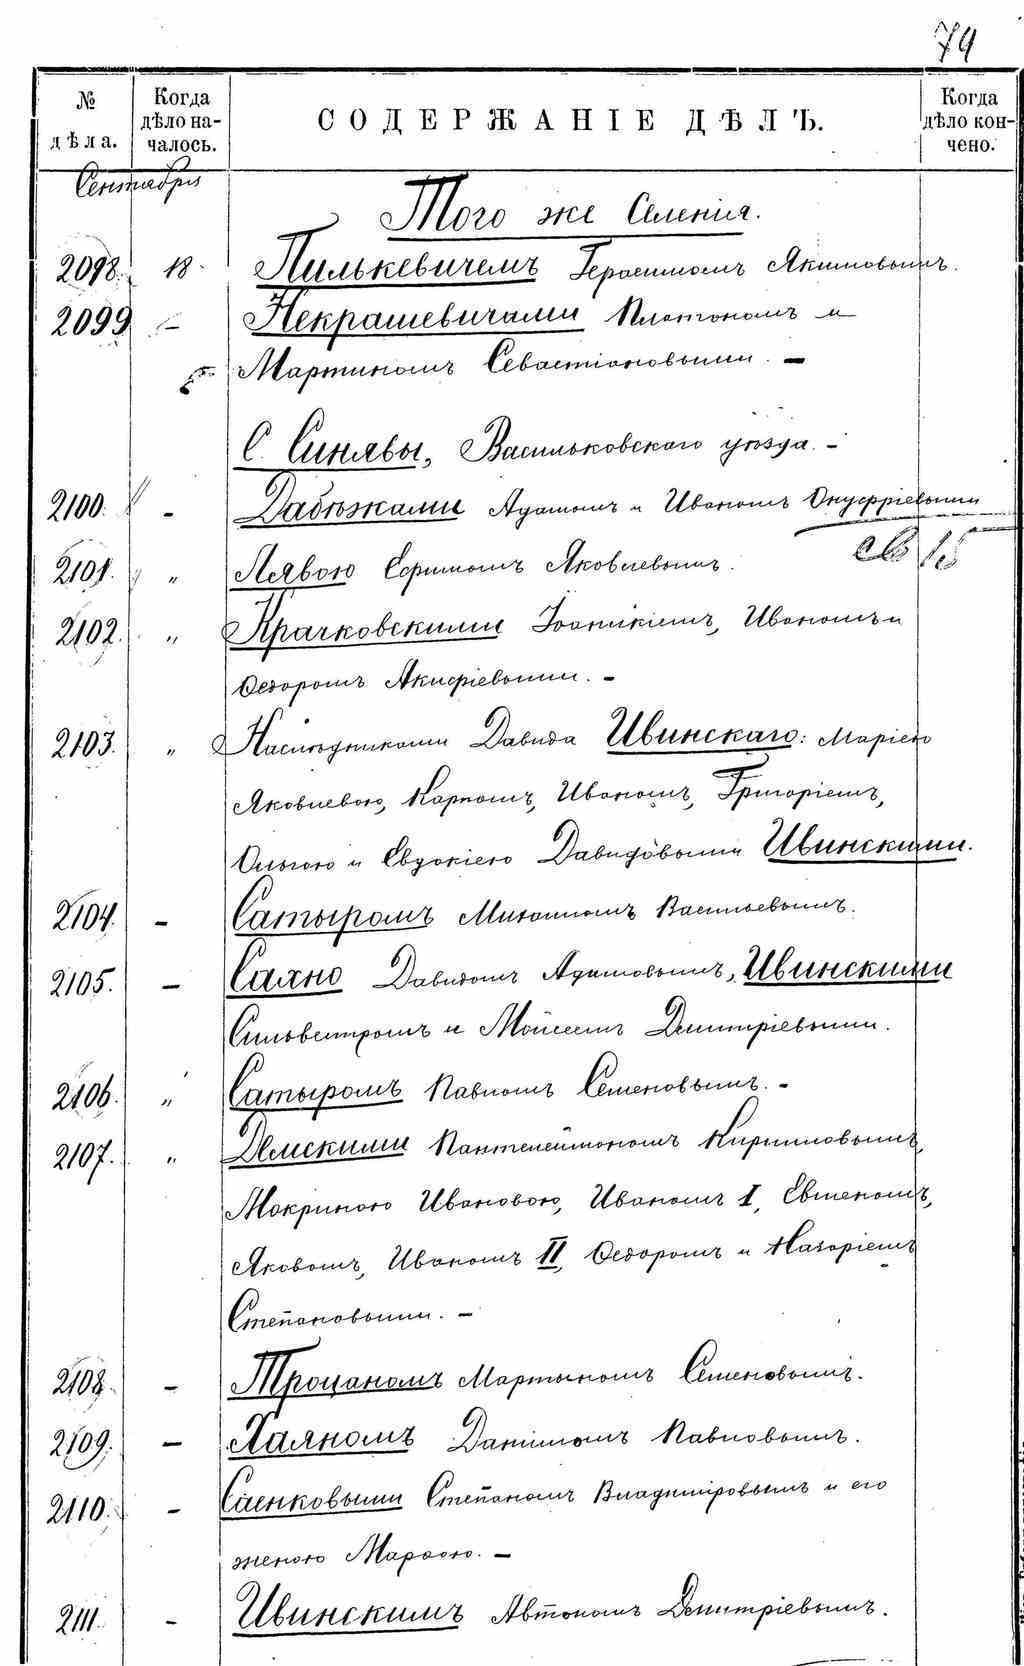 79
№ дѣла. Когда дѣло началось. СОДЕРЖАНІЕ ДѢЛЪ. Когда дѣло кончено.
Сентября
Того же Селенія.
2098. 18. Пилькевичемъ Герасимомъ Акимовымъ.
2099 – Некрашевичами Платономъ и
Мартиномъ Севастіановыми. –
С. Синявы, Васильковскаго уѣзда. –
2100. – Дабѣжами Адамомъ и Иваномъ Онуфріевыми
2101. " Лявою Ефимомъ Яковлевымъ.
св 15
2102. " Крачковскими Іоаникіемъ, Иваномъ и
Ѳедоромъ Акифіевыми. –
2103. " Наслѣдниками Давида Ивинскаго: Маріею
Яковлевою, Карпомъ, Иваномъ, Григоріемъ,
Ольгою и Евдокіею Давидовыми Ивинскими.
2104. – Сатыромъ Михаиломъ Васильевымъ.
2105. – Саяно Давидомъ Адамовымъ, Ивинскими
Сильвестромъ и Мойсеемъ Димитріевыми.
2106. " Сатыромъ Павломъ Семеновымъ. –
2107. " Демскими Пантелеймономъ Кириловымъ,
Мокриною Ивановою, Иваномъ I, Евменомъ,
Яковомъ, Иваномъ II, Ѳедоромъ и Назаріемъ
Степановыми. –
2108. – Троцаномъ Мартыномъ Семеновымъ.
2109. – Хаяномъ Даніиломъ Павловымъ.
2110. – Саенковыми Степаномъ Владиміровымъ и его
женою Марѳою. –
2111. – Ивинскимъ Автономъ Димитріевымъ.